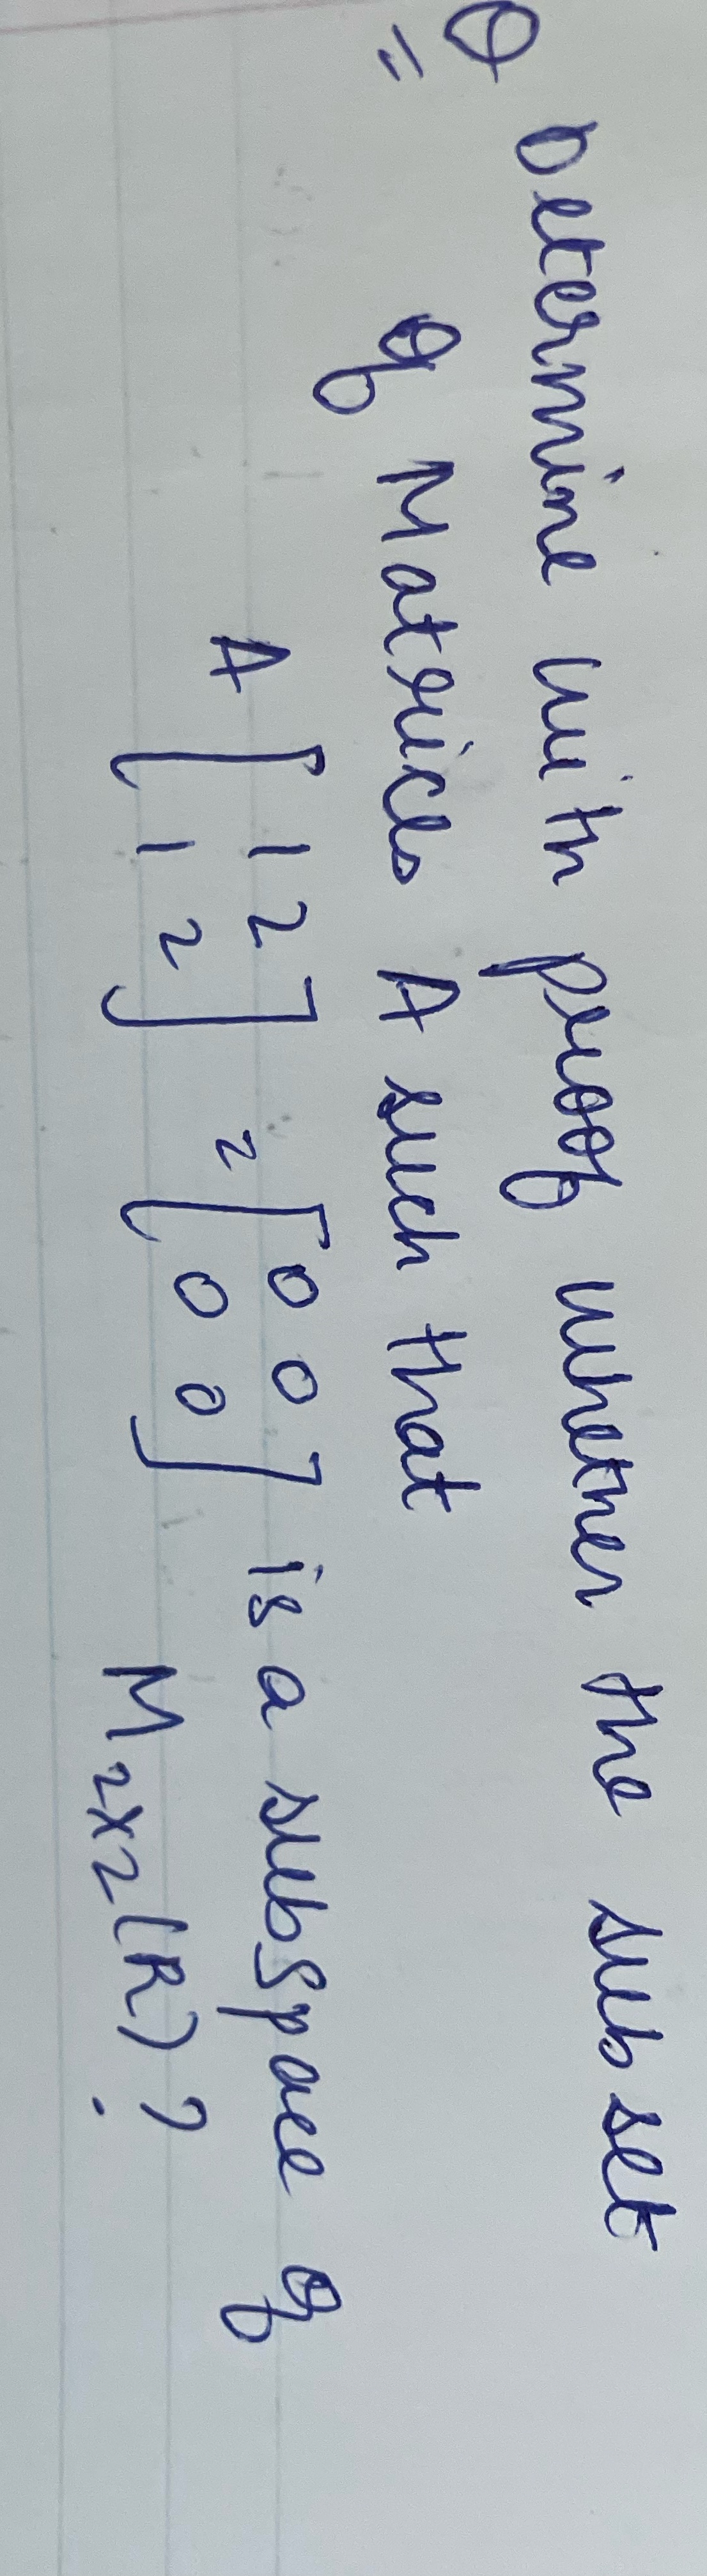 Q Determine with proof whether the subset
= of Matrices A such that
A [ 1 2 ] = [ 0 0 ] is a subspace of
[ 1 2 ] [ 0 0 ] M2x2(R)?